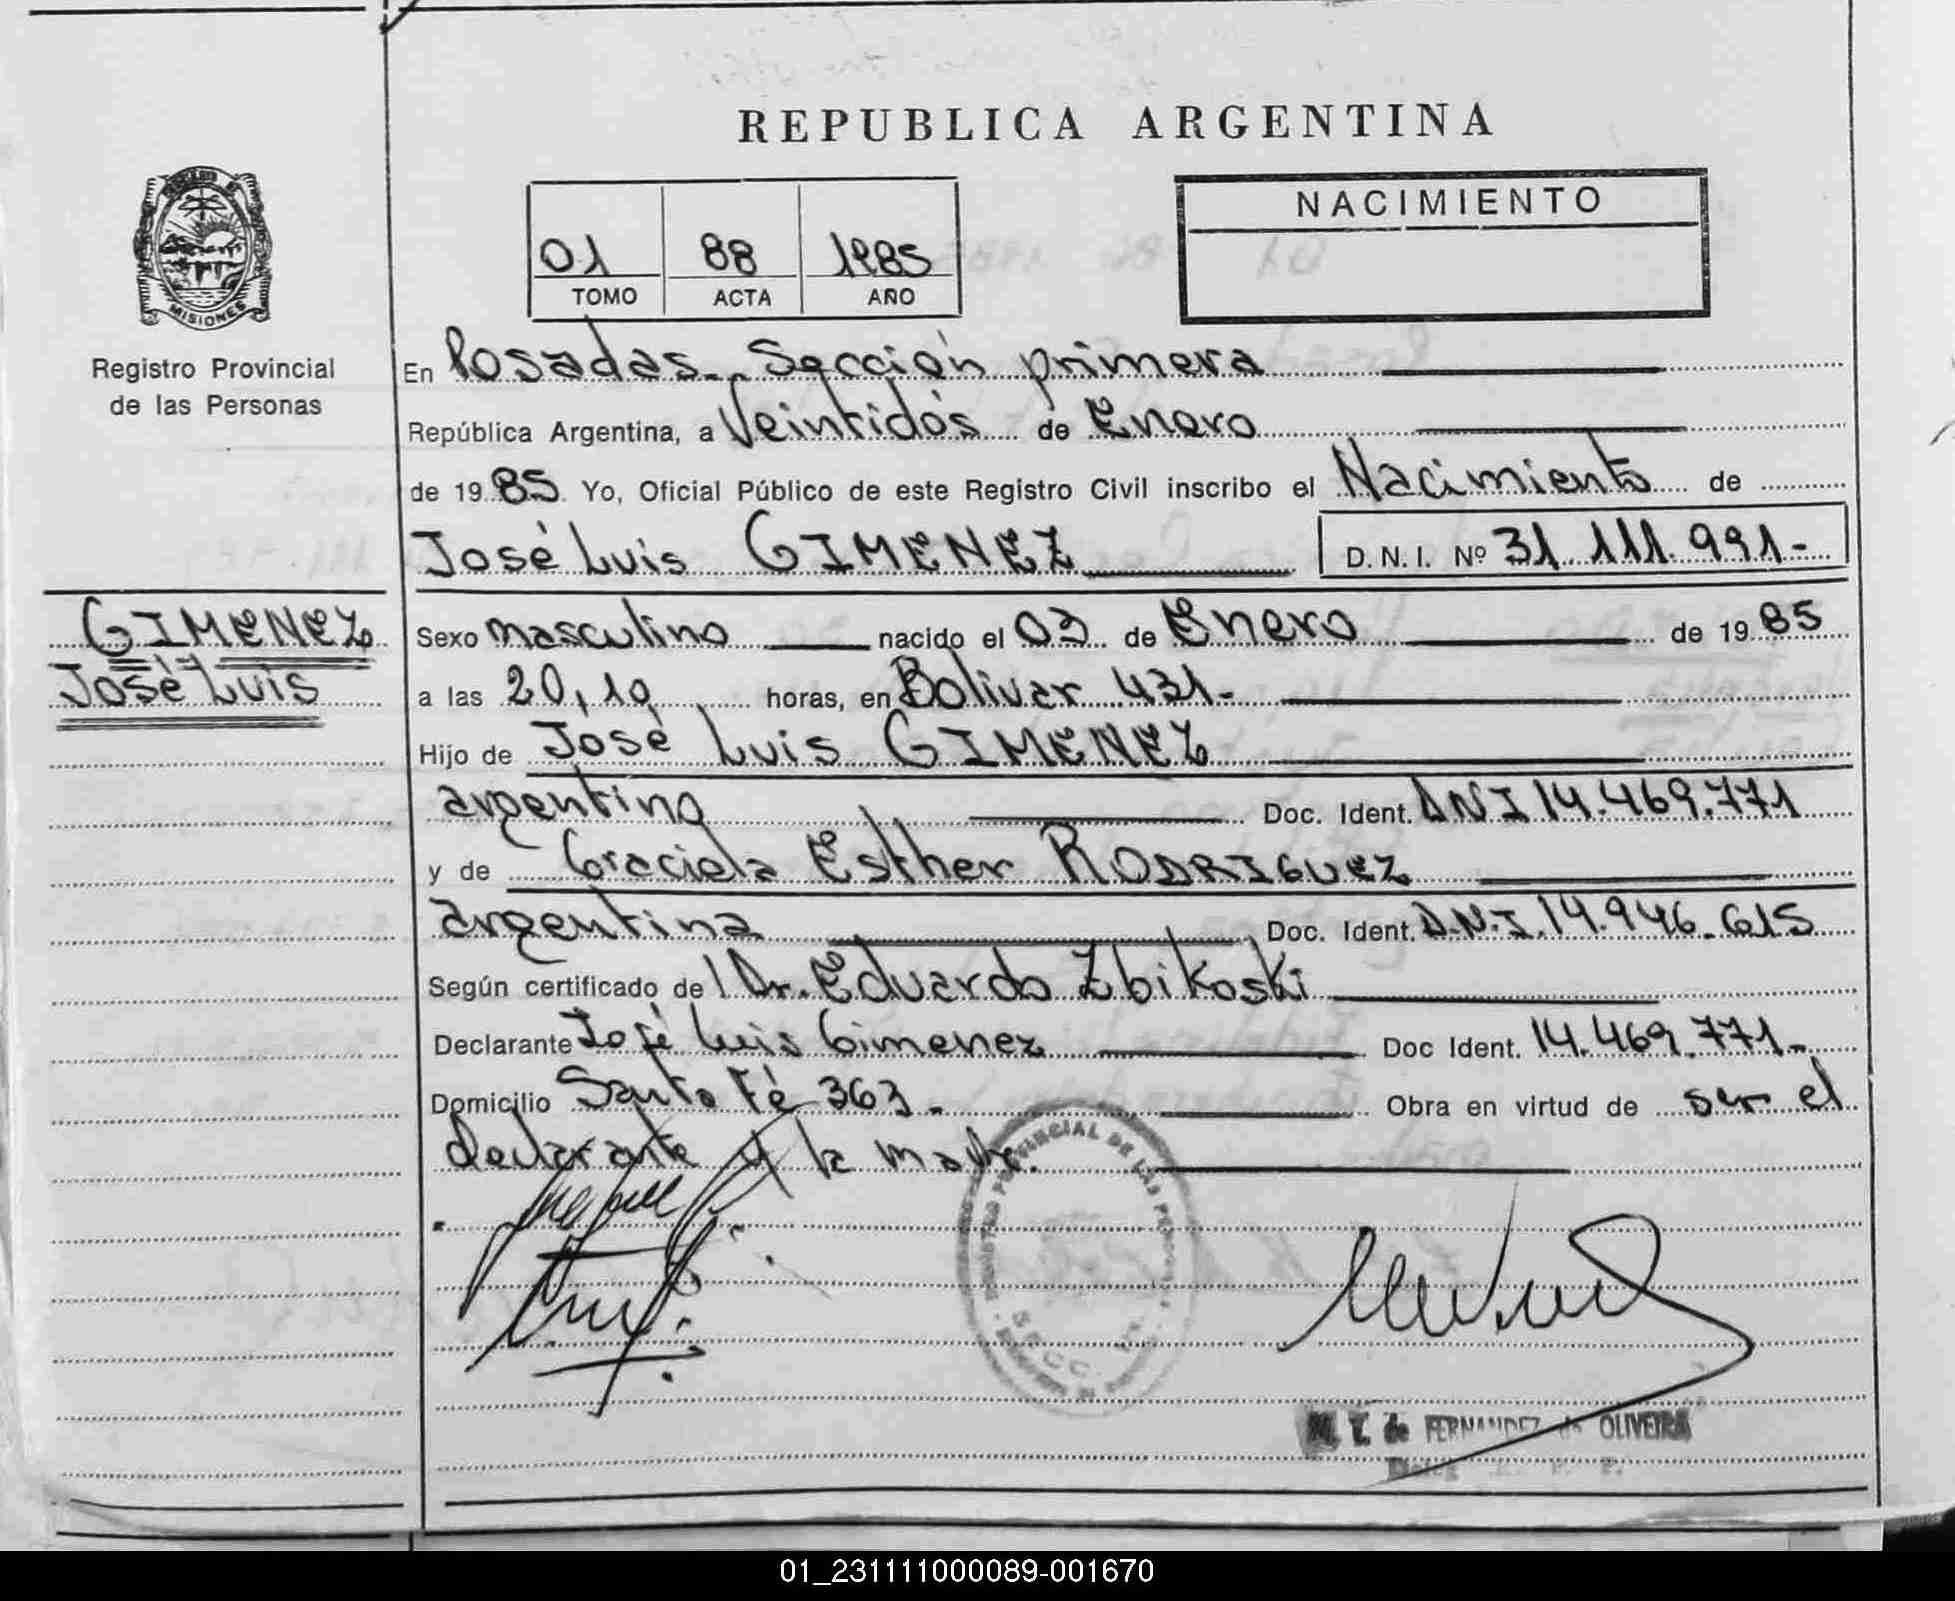 REPUBLICA ARGENTINA
MISIONES
Registro Provincial
de las Personas
01 88 1985
TOMO ACTA AÑO
NACIMIENTO
En Posadas - Sección primera
República Argentina, a Veintidós de Enero
de 1985 Yo, Oficial Público de este Registro Civil inscribo el Nacimiento de
José Luis GIMENEZ D.N.I. Nº 31.111.991-
GIMENEZ
José Luis
Sexo masculino nacido el 03 de Enero de 1985
a las 20,10 horas, en Bolivar 431-
Hijo de José Luis GIMENEZ
argentino Doc. Ident. DNI 14.469.771
y de Graciela Esther RODRIGUEZ
argentina Doc. Ident. D.N.I. 14.946.615
Según certificado del Dr. Eduardo Zbikoski
Declarante José Luis Gimenez Doc Ident. 14.469.771-
Domicilio Santa Fé 363. Obra en virtud de ser el
declarante y la madre.
PROVINCIAL DE LAS
M. T. de FERNANDEZ de OLIVEIRA
01_231111000089-001670